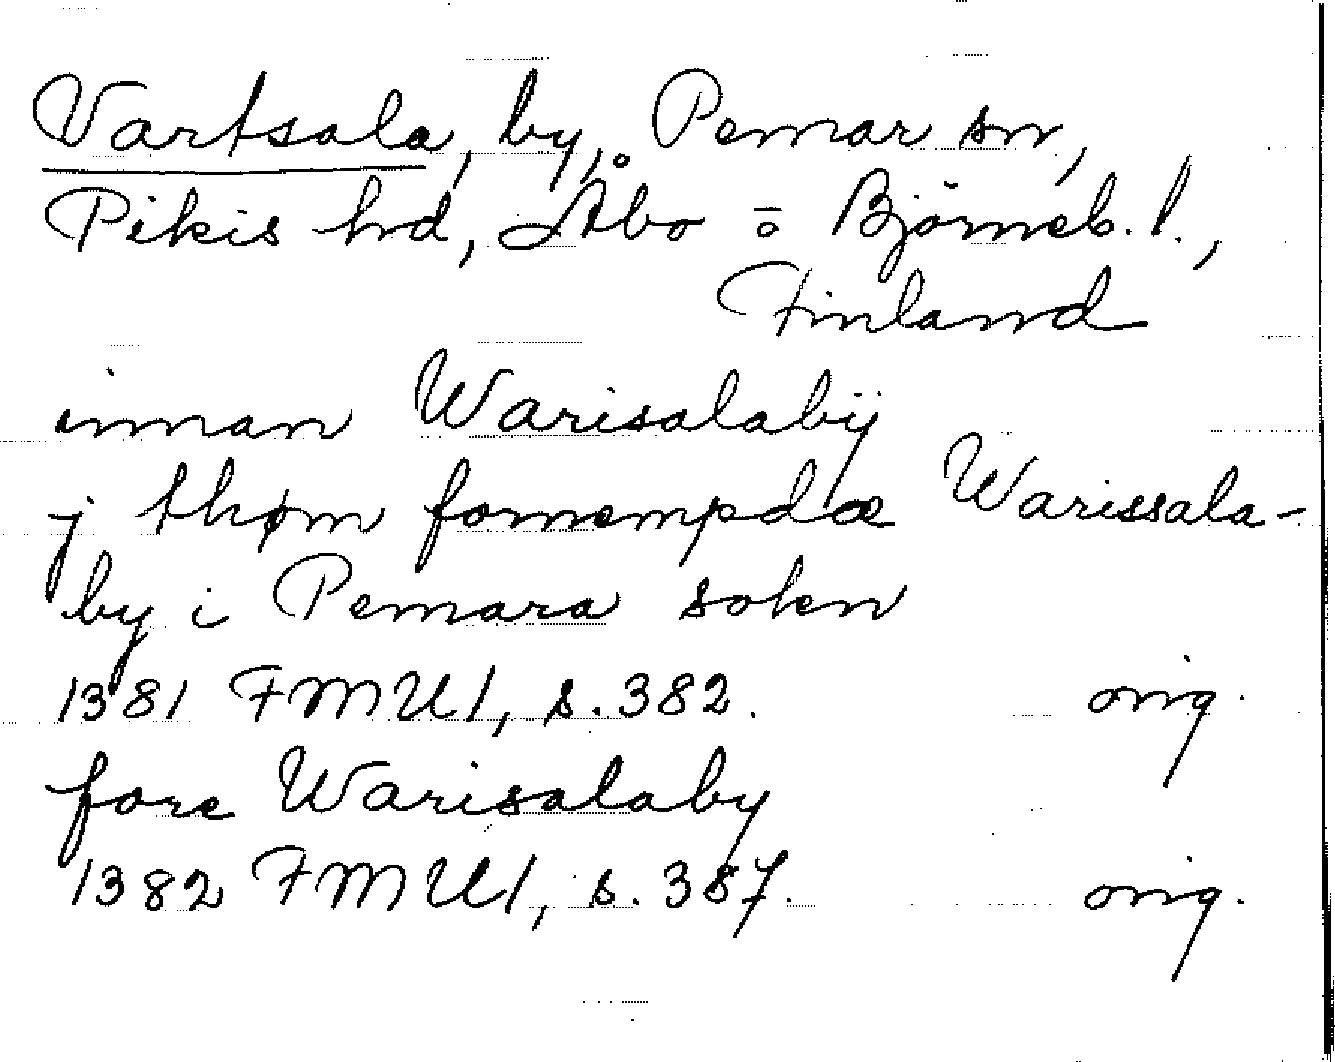 Vartsala, by, Pemar sn,
Pikis hd, Åbo o Björneb. l.,
Finland
innan Warisalabÿ
j thøm fornempdæ Warissala-
by i Pemara sokn
1381 FMU1, s. 382. orig.
fore Warisalaby
1382 FMU1, s. 387. orig.